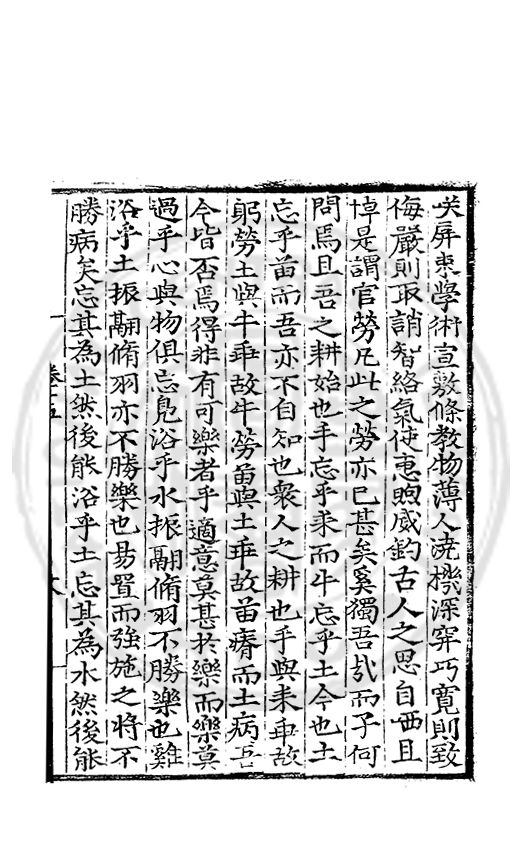 屏束學術宣敷條教物薄人澆機深穽巧寬則致
侮嚴則取誚智絡氣使惠煦威釣古人之思自西且
悼是謂官勞凡此之勞亦已甚矣奚獨吾哉而子何
問焉且吾之耕始也手忘乎耒而牛忘乎土今也土
忘乎苗而吾亦不自知也衆人之耕也手與耒乖故
躬勞土與牛乖故牛勞苗與土乖故苗瘠而土病吾
今皆否焉得非有可樂者乎適意莫甚於樂而樂莫
過乎心與物俱忘鳧浴乎水振翮脩羽不勝樂也雞
浴乎土振翮脩羽亦不勝樂也易置而強施之將不
勝病矣忘其為土然後能浴乎土忘其為水然後能
卷十五